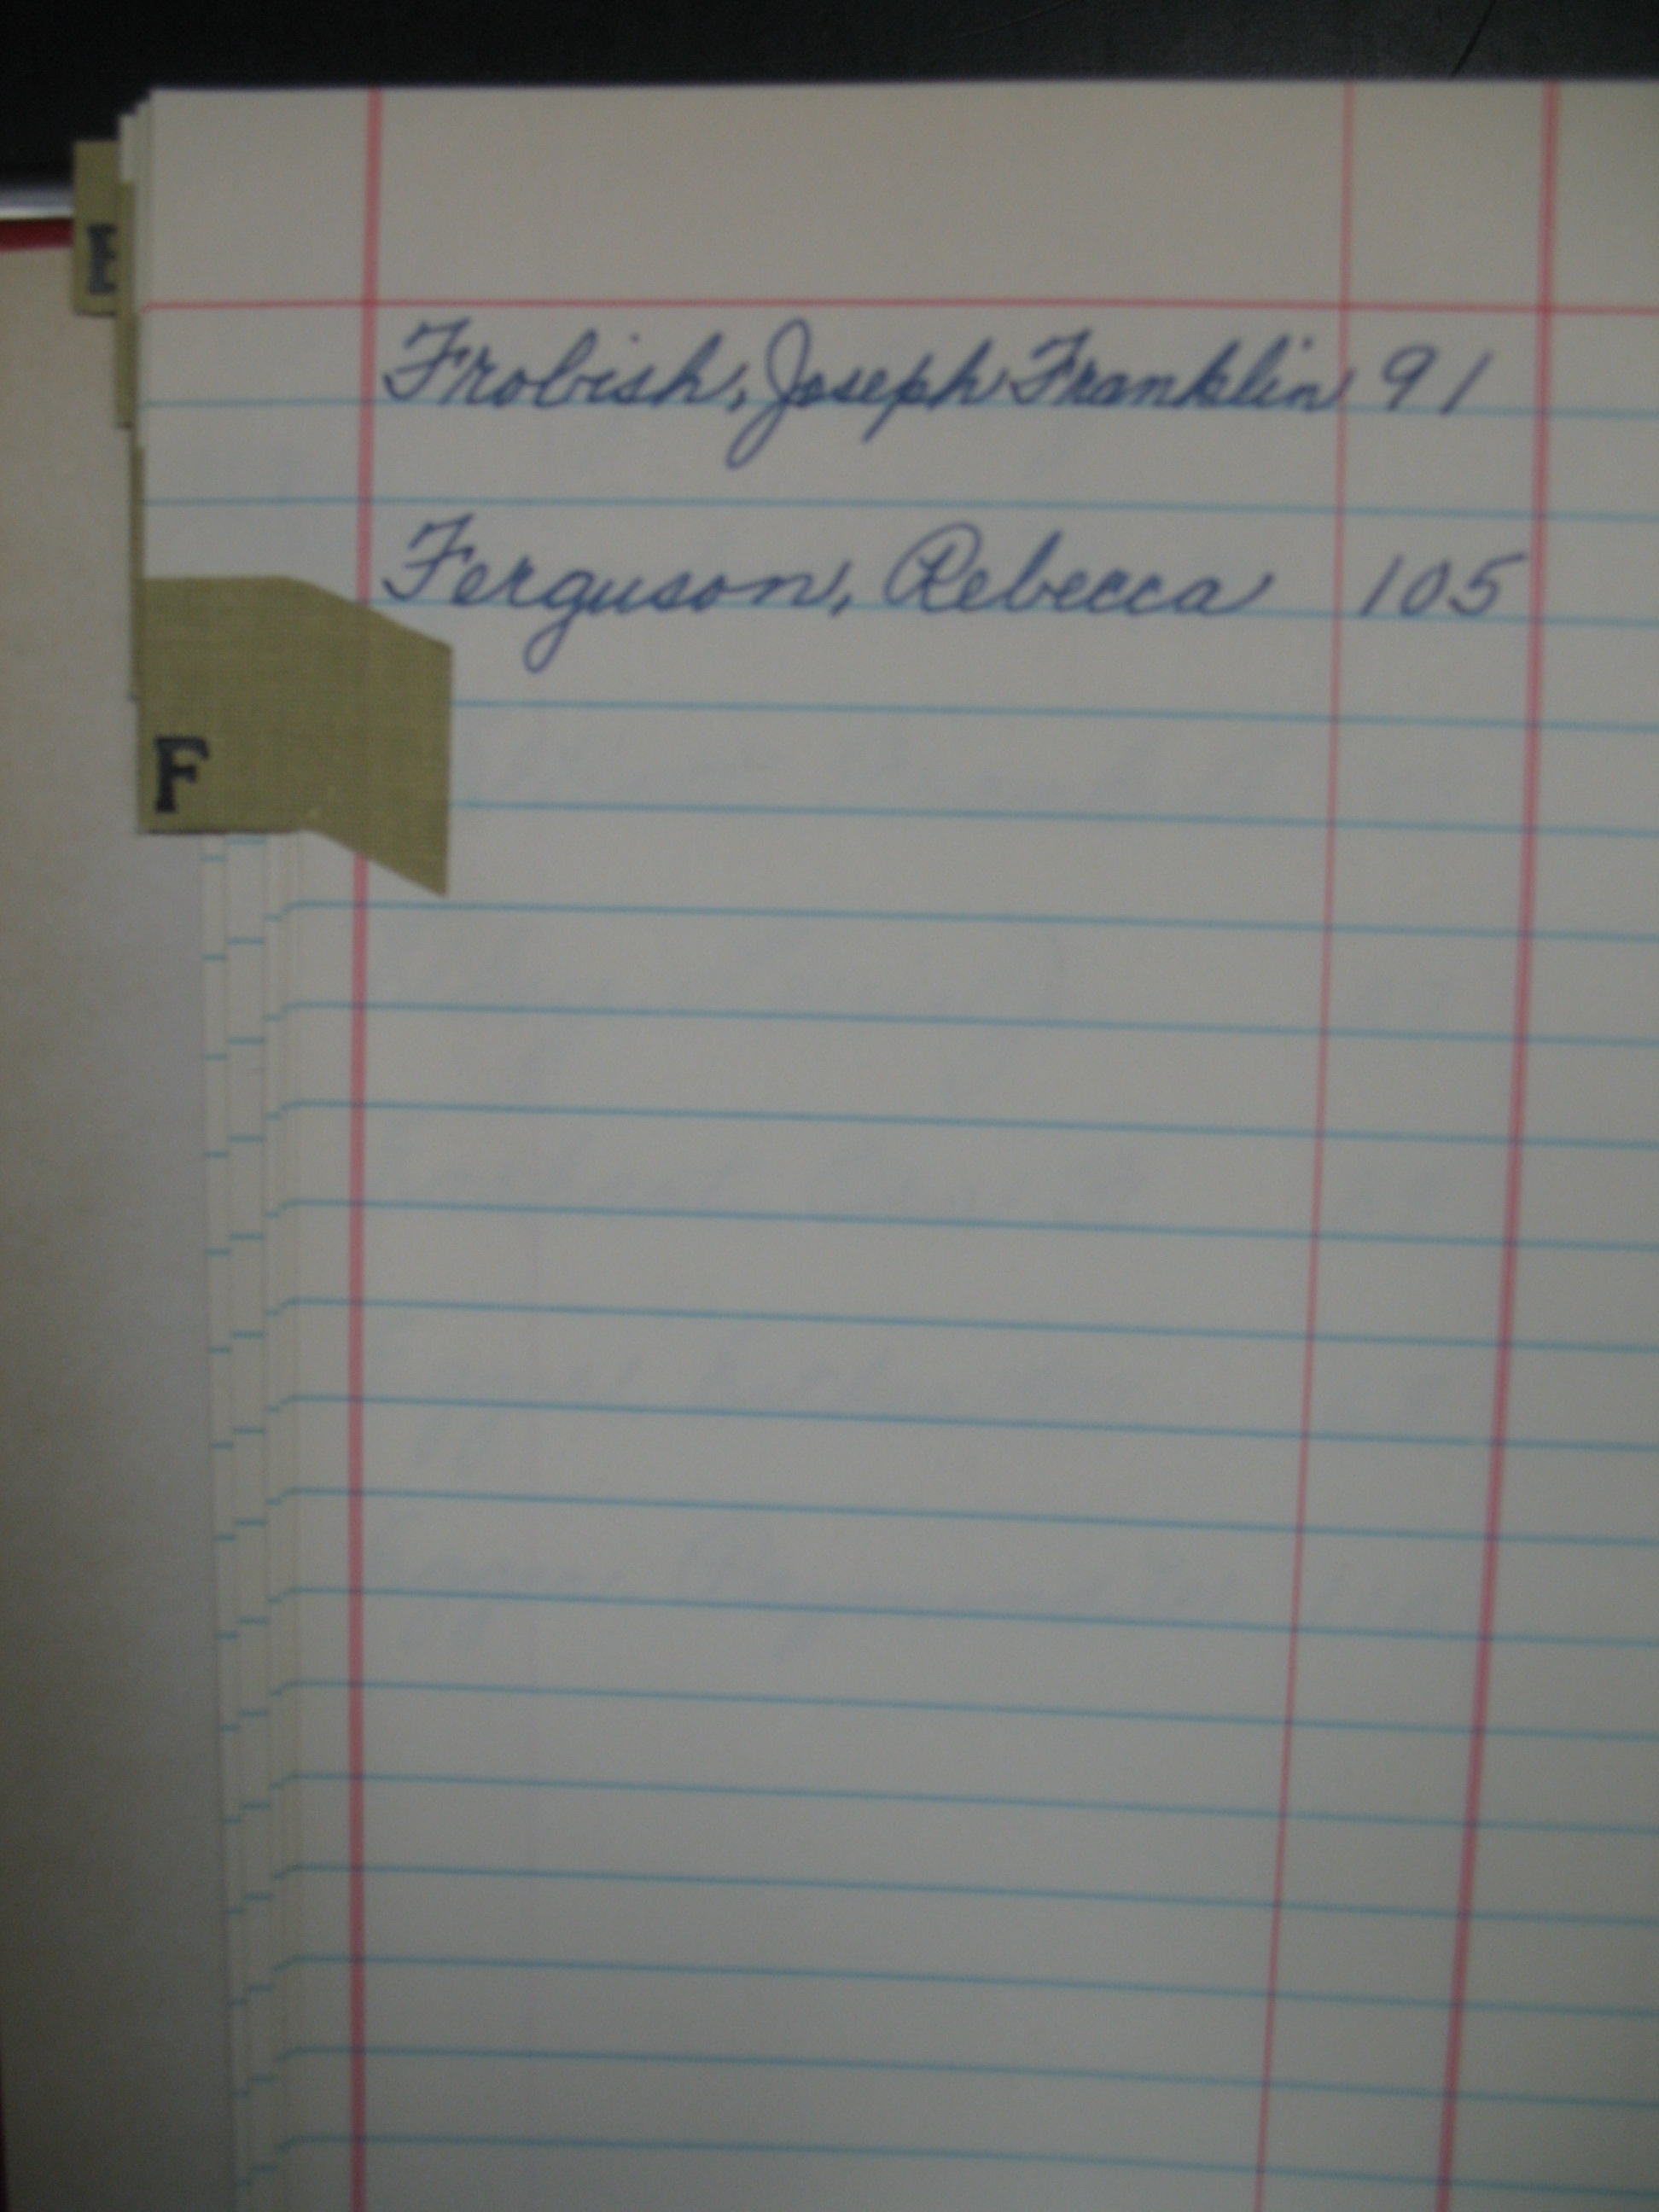 E
Frobish, Joseph Franklin 91
Ferguson, Rebecca 105
F